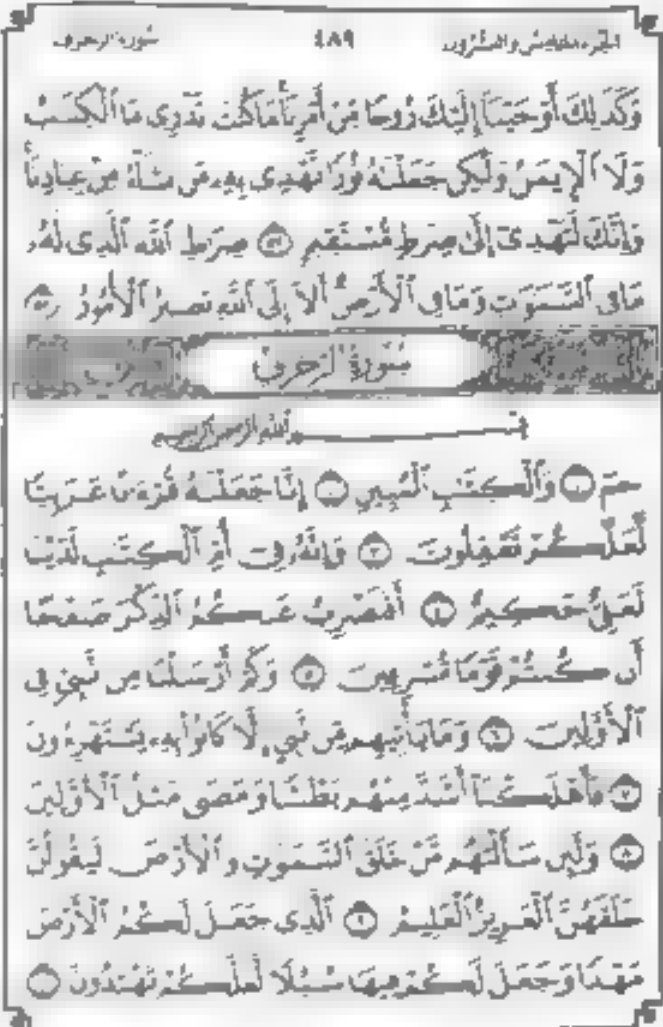 سُورَةُ الزُّخْرُفِ ٤٨٩ الجُزْءُ الخَامِسُ وَالعِشْرُونَ
وَكَذَٰلِكَ أَوْحَيْنَآ إِلَيْكَ رُوحًا مِّنْ أَمْرِنَا مَا كُنتَ تَدْرِى مَا ٱلْكِتَٰبُ
وَلَا ٱلْإِيمَٰنُ وَلَٰكِن جَعَلْنَٰهُ نُورًا نَّهْدِى بِهِۦ مَن نَّشَآءُ مِنْ عِبَادِنَا
وَإِنَّكَ لَتَهْدِىٓ إِلَىٰ صِرَٰطٍ مُّسْتَقِيمٍ ٥٢ صِرَٰطِ ٱللَّهِ ٱلَّذِى لَهُۥ
مَا فِى ٱلسَّمَٰوَٰتِ وَمَا فِى ٱلْأَرْضِ أَلَآ إِلَى ٱللَّهِ تَصِيرُ ٱلْأُمُورُ ٥٣
سُورَةُ الزُّخْرُفِ
بِسْمِ ٱللَّهِ ٱلرَّحْمَٰنِ ٱلرَّحِيمِ
حمٓ ١ وَٱلْكِتَٰبِ ٱلْمُبِينِ ٢ إِنَّا جَعَلْنَٰهُ قُرْءَٰنًا عَرَبِيًّا
لَّعَلَّكُمْ تَعْقِلُونَ ٣ وَإِنَّهُۥ فِىٓ أُمِّ ٱلْكِتَٰبِ لَدَيْنَا
لَعَلِىٌّ حَكِيمٌ ٤ أَفَنَضْرِبُ عَنكُمُ ٱلذِّكْرَ صَفْحًا
أَن كُنتُمْ قَوْمًا مُّسْرِفِينَ ٥ وَكَمْ أَرْسَلْنَا مِن نَّبِىٍّ فِى
ٱلْأَوَّلِينَ ٦ وَمَا يَأْتِيهِم مِّن نَّبِىٍّ إِلَّا كَانُوا۟ بِهِۦ يَسْتَهْزِءُونَ
٧ فَأَهْلَكْنَآ أَشَدَّ مِنْهُم بَطْشًا وَمَضَىٰ مَثَلُ ٱلْأَوَّلِينَ
٨ وَلَئِن سَأَلْتَهُم مَّنْ خَلَقَ ٱلسَّمَٰوَٰتِ وَٱلْأَرْضَ لَيَقُولُنَّ
خَلَقَهُنَّ ٱلْعَزِيزُ ٱلْعَلِيمُ ٩ ٱلَّذِى جَعَلَ لَكُمُ ٱلْأَرْضَ
مَهْدًا وَجَعَلَ لَكُمْ فِيهَا سُبُلًا لَّعَلَّكُمْ تَهْتَدُونَ ١٠